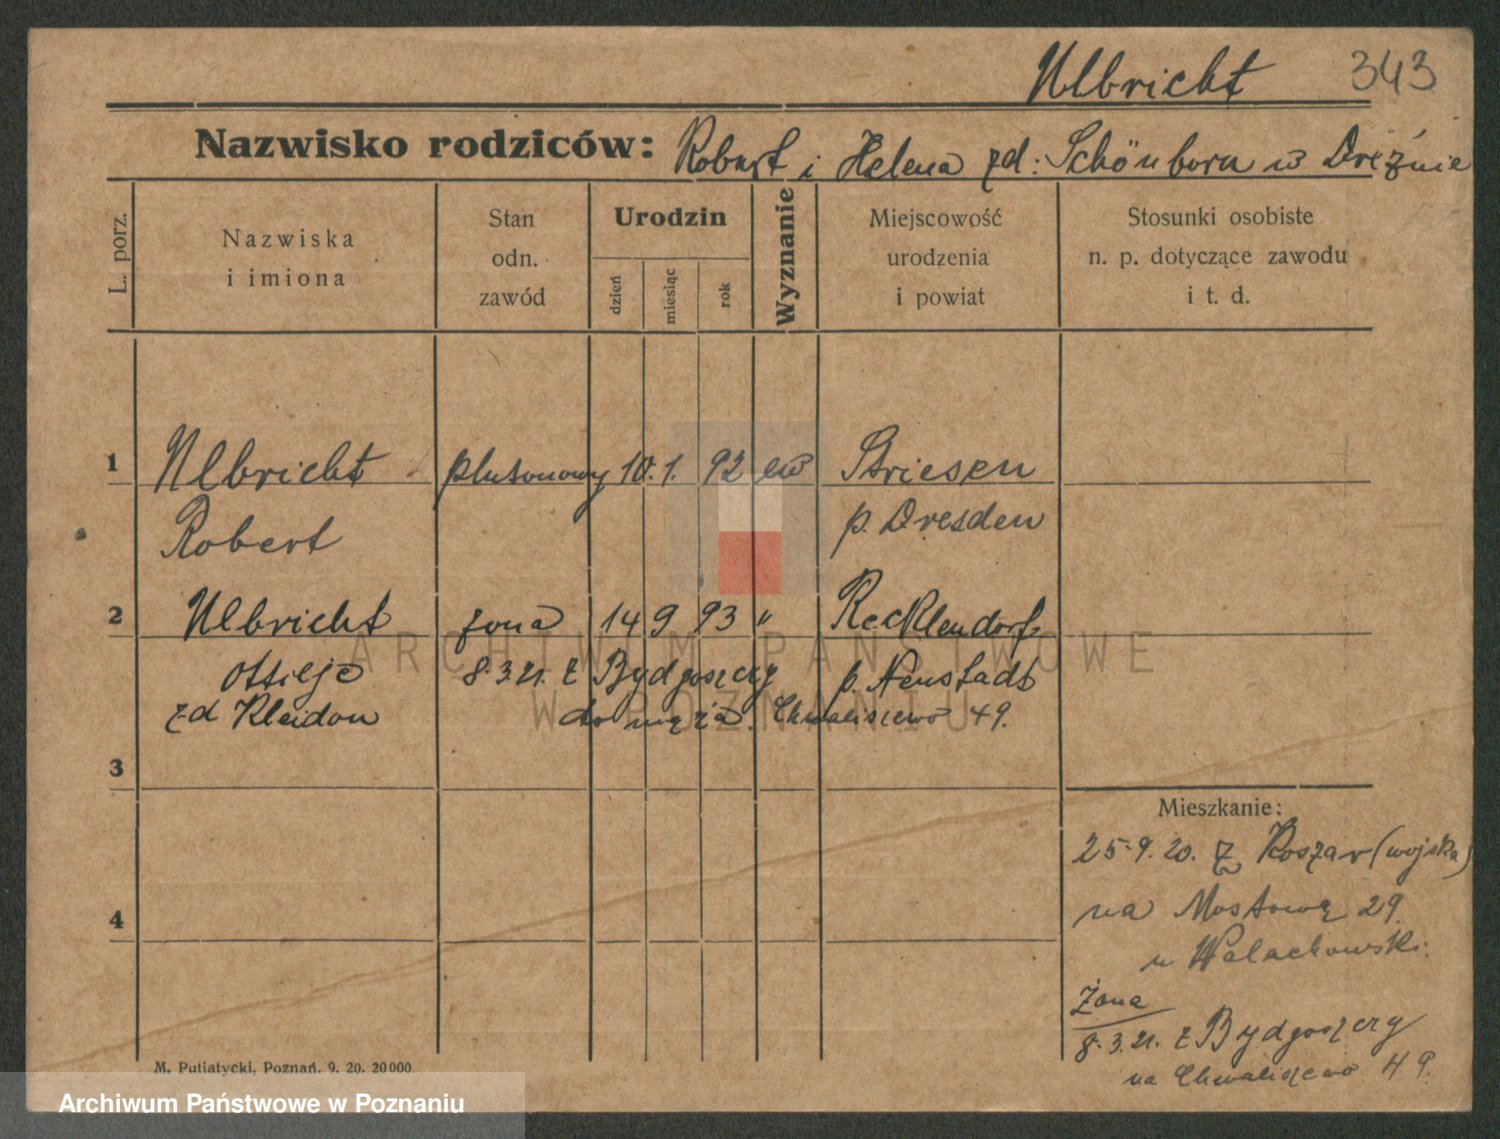 Ulbricht 343
Nazwisko rodziców: Robert i Helena zd: Schönborn w Dreźnie
L. porz.
Nazwiska
i imiona
Stan
odn.
zawód
Urodzin
dzień
miesiąc
rok
Wyznanie
Miejscowość
urodzenia
i powiat
Stosunki osobiste
n. p. dotyczące zawodu
i t. d.
1 Ulbricht plutonowy 10. 1. 92 ew Striesen
Robert p. Dresden
2 Ulbricht żona 14 9 93 " Recklendorf
Ottilje 8.3.21. z Bydgoszczy p. Neustadt
zd Kleidon do męża Chwaliszewo 49.
3
Mieszkanie:
25.9.20. z Koszar (wojska)
na Mostową 29.
u Walachowski.
4
Żona
8.3.21. z Bydgoszczy
na Chwaliszewo 49.
M. Putiatycki, Poznań. 9. 20. 20000.
ARCHIWUM PAŃSTWOWE
W POZNANIU
Archiwum Państwowe w Poznaniu